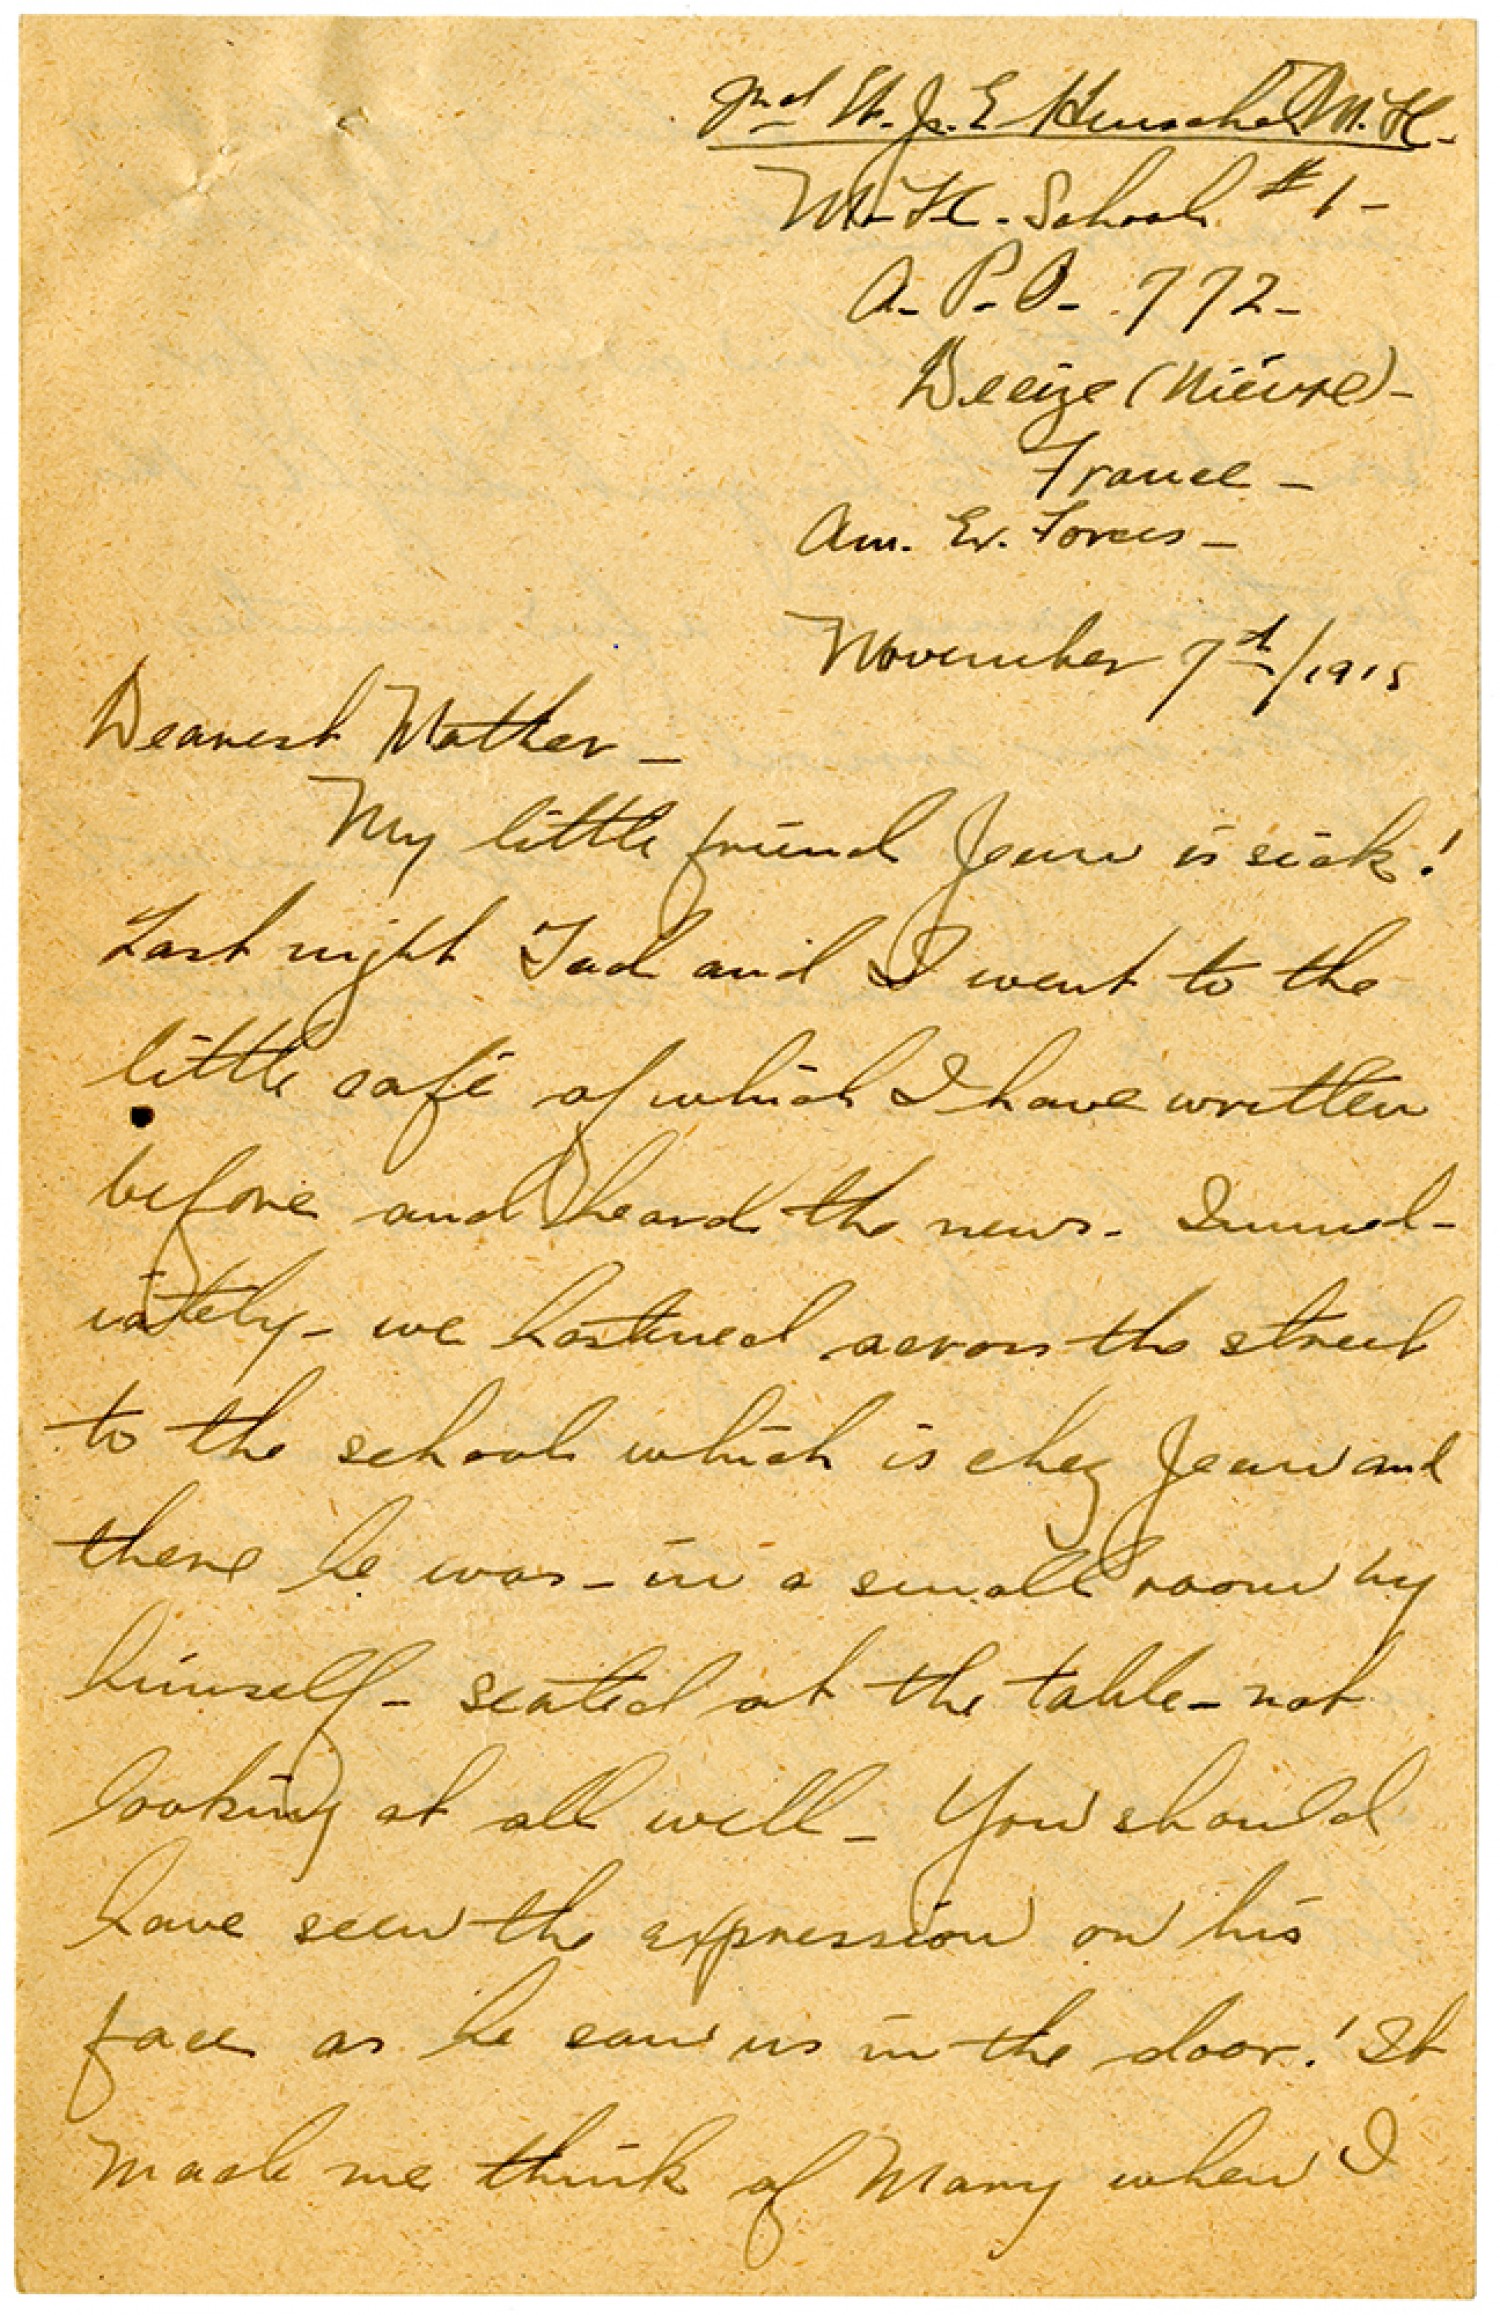 2nd Lt. J. E. Henschel M. H.
M. H. School #1-
A- P.- O- 772-
Decize (Nièvre)-
France -
Am. Ex. Forces -
November 7th/1918
Dearest Mother -
My little friend Jean is sick!
Last night Tad and I went to the
little café of which I have written
before and heard the news. Immed-
iately - we hastened across the street
to the school which is chez Jean and
there he was - in a small room by
himself - seated at the table - not
looking at all well - You should
have seen the expression on his
face as he saw us in the door! It
made me think of Mary when I